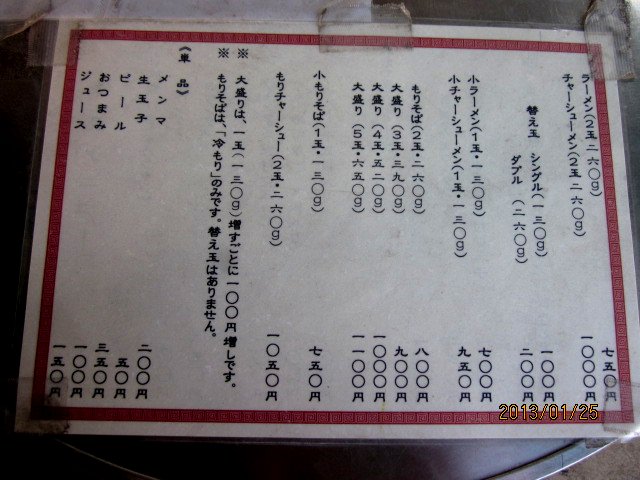 ラーメン(2玉二六〇g) 七五〇円
チャーシューメン(2玉二六〇g) 一〇〇〇円
替え玉 シングル(一三〇g) 一〇〇円
ダブル (二六〇g) 二〇〇円
小ラーメン(1玉・一三〇g) 七〇〇円
小チャーシューメン(1玉・一三〇g) 九五〇円
もりそば(2玉・二六〇g) 八〇〇円
大盛り(3玉・三九〇g) 九〇〇円
大盛り(4玉・五二〇g) 一〇〇〇円
大盛り(5玉・六五〇g) 一一〇〇円
小もりそば(1玉・一三〇g) 七五〇円
もりチャーシュー(2玉・二六〇g) 一〇五〇円
※ 大盛りは、一玉(一三〇g)増すごとに一〇〇円増しです。
※ もりそばは、「冷もり」のみです。替え玉はありません。
《単品》
メンマ 二〇〇円
生玉子 五〇円
ビール 三五〇円
おつまみ 一〇〇円
ジュース 一五〇円
2013/01/25